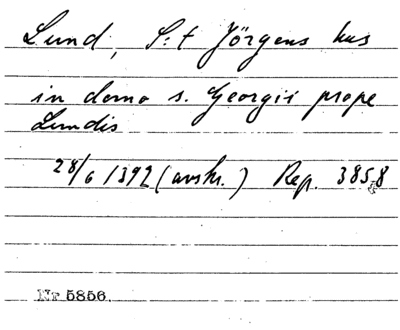 Lund, S:t Jörgens hus
in domo s. Georgii prope
Lundis
28/6 1392 (avskr.) Rep. 3858
Nr 5856.